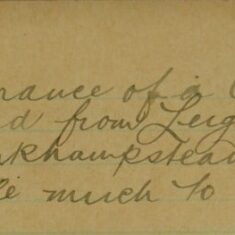 rance of a
d from Leig
rkhampstead
le much to